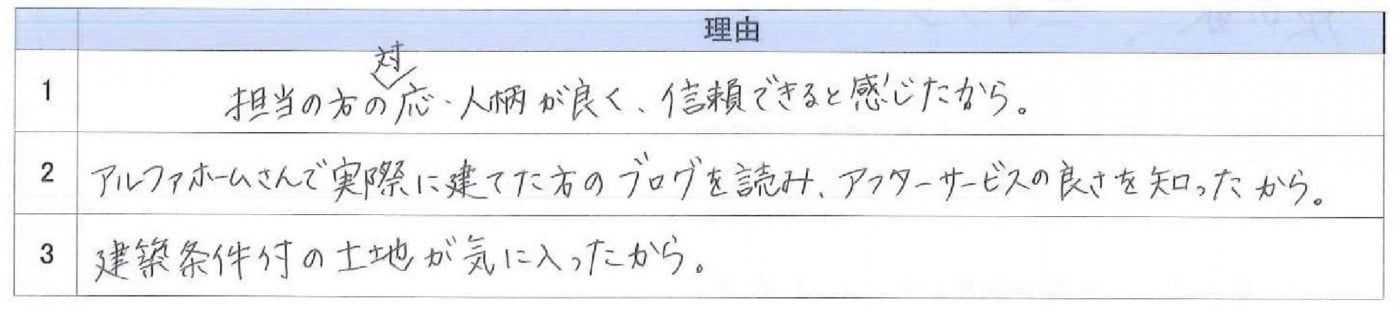 理由
1 担当の方の対応・人柄が良く、信頼できると感じたから。
2 アルファホームさんで実際に建てた方のブログを読み、アフターサービスの良さを知ったから。
3 建築条件付の土地が気に入ったから。